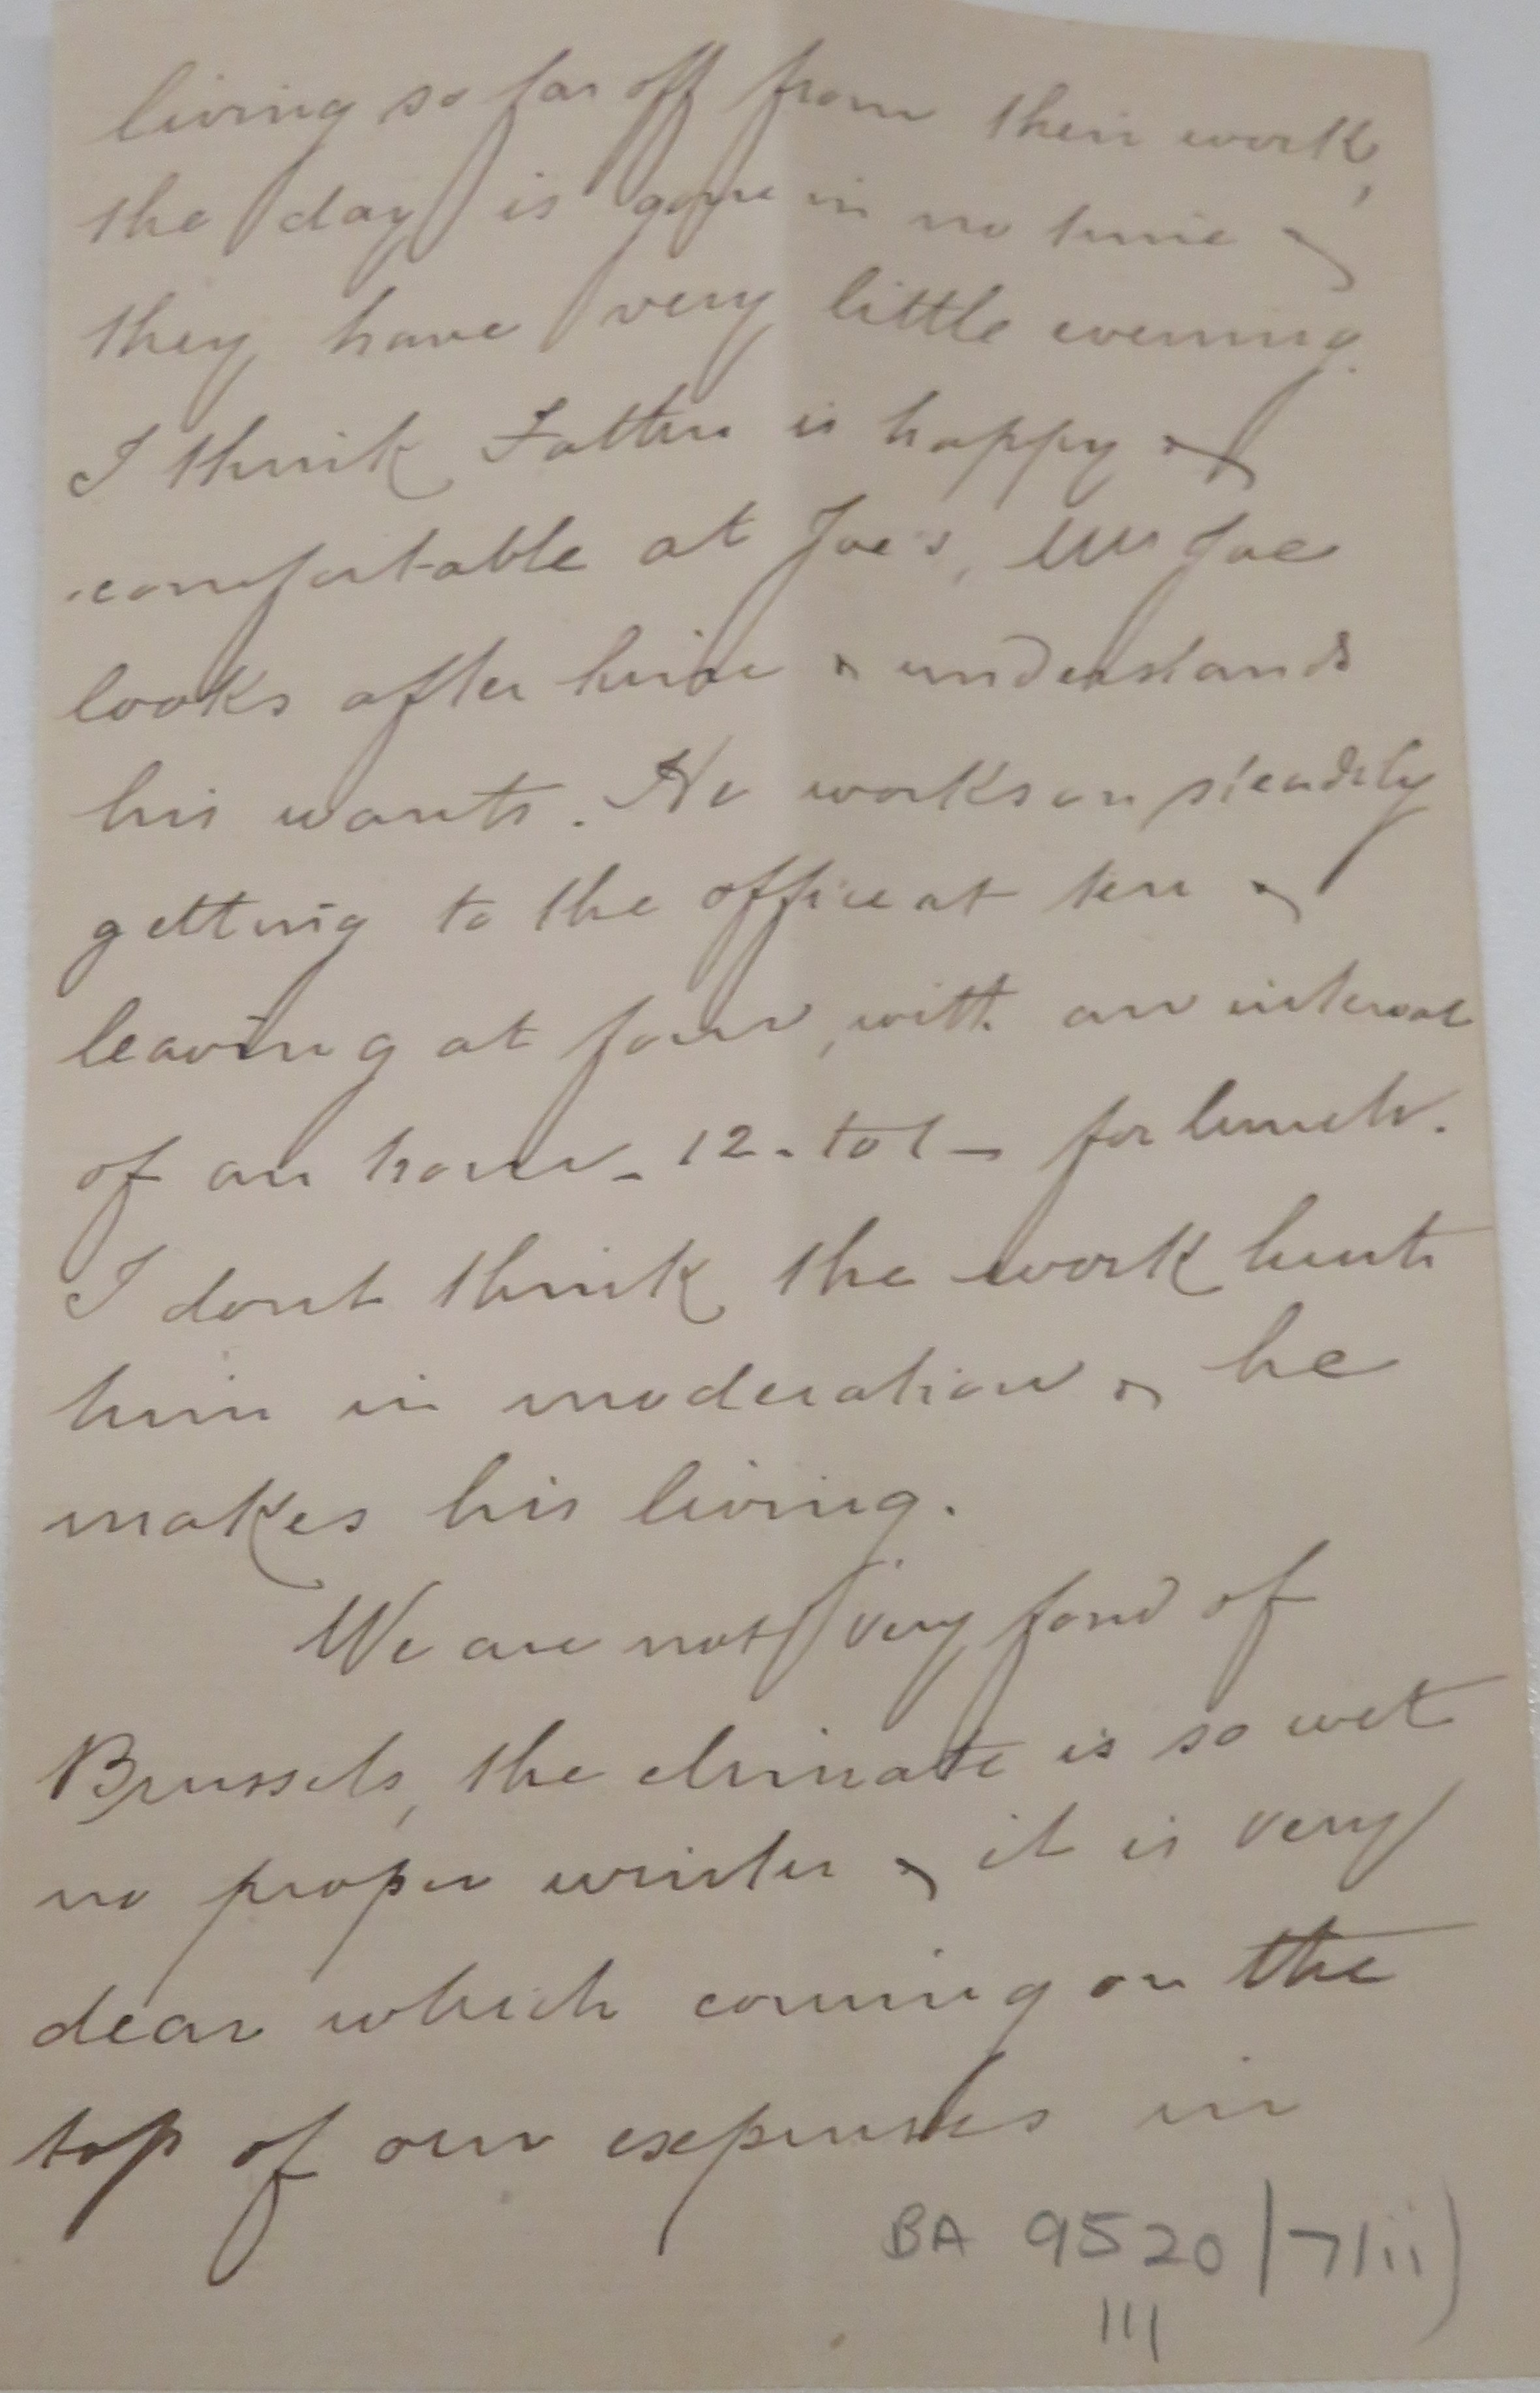 living so far off from their work,
the day is gone in no time &
they have very little evening.
I think Father is happy &
comfortable at Joe's, Mrs Joe
looks after him & understands
his wants. He works on steadily
getting to the office at ten &
leaving at four, with an interval
of an hour - 12 - to 1 - for lunch.
I dont think the work hurts
him in moderation & he
makes his living.
We are not very fond of
Brussels, the climate is so wet
no proper winter & it is very
dear which coming on the
top of our expenses in
BA 9520/7/ii)
III